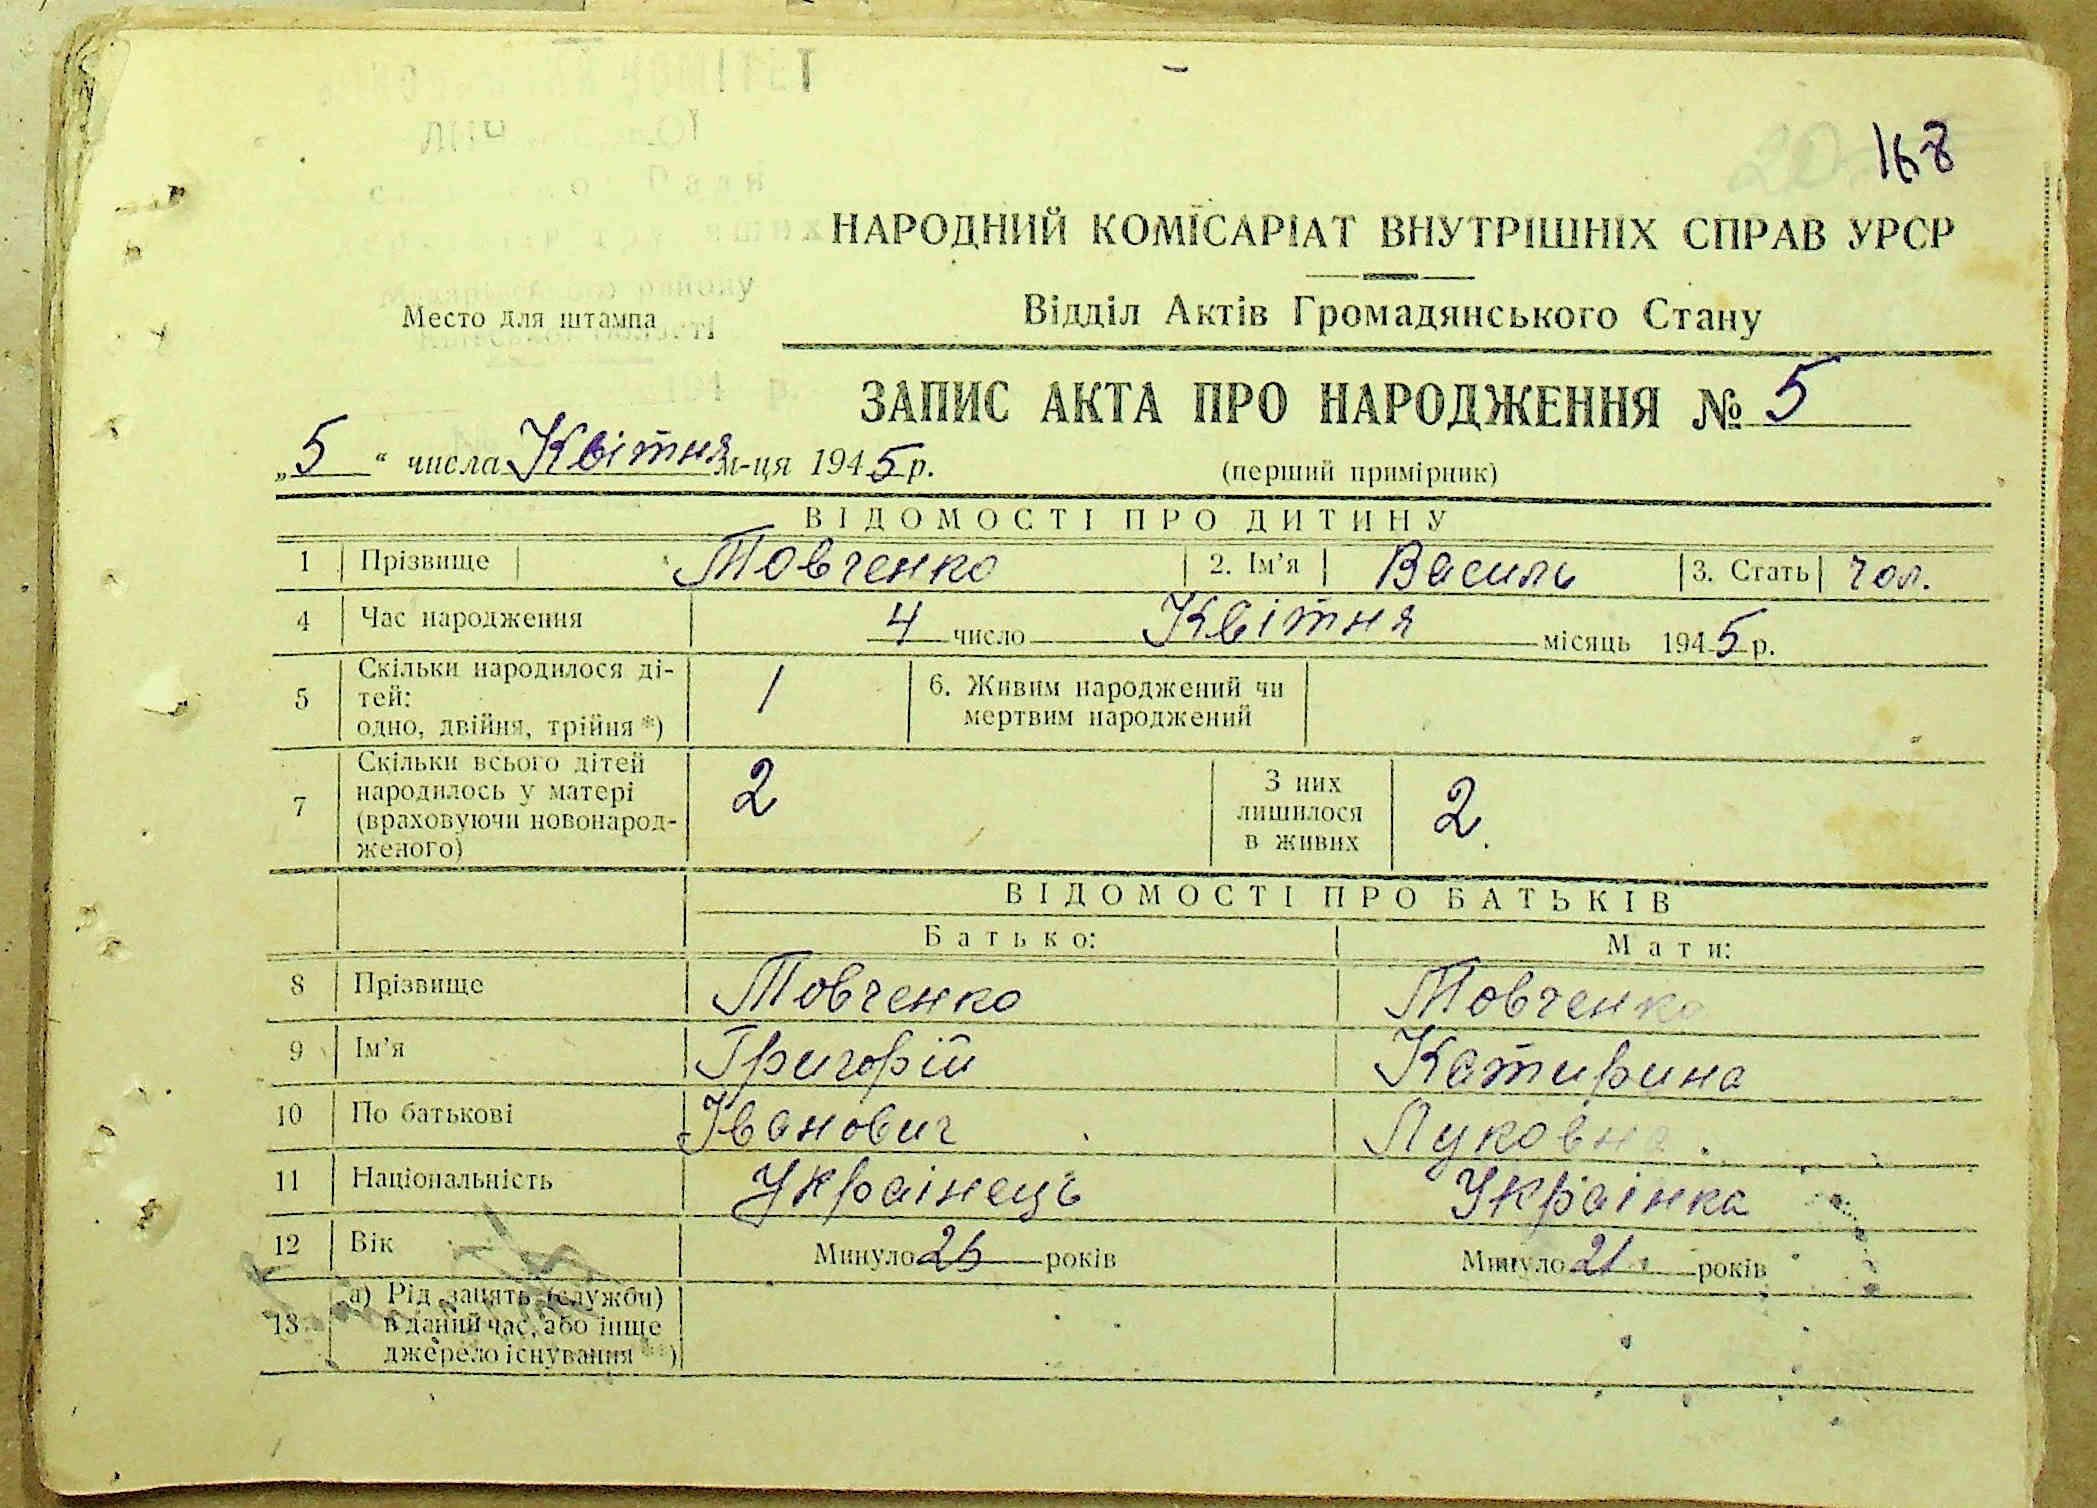 КОМІТЕТ
168
НАРОДНИЙ КОМІСАРІАТ ВНУТРІШНІХ СПРАВ УРСР
району
Место для штампа
Відділ Актів Громадянського Стану
ЗАПИС АКТА ПРО НАРОДЖЕННЯ № 5
„5“ числа Квітня м-ця 1945 р.
(перший примірник)
ВІДОМОСТІ ПРО ДИТИНУ
1 Прізвище Товченко 2. Ім'я Василь 3. Стать чол.
4 Час народження 4 число Квітня місяць 1945 р.
5 Скільки народилося ді-
тей:
одно, двійня, трійня *) 1 6. Живим народжений чи
мертвим народжений
7 Скільки всього дітей
народилось у матері
(враховуючи новонарод-
женого) 2 З них
лишилося
в живих 2.
ВІДОМОСТІ ПРО БАТЬКІВ
Батько: Мати:
8 Прізвище Товченко Товченко
9 Ім'я Григорій Катирина
10 По батькові Іванович Луковна
11 Національність Украінець Украінка
12 Вік Минуло 26 років Минуло 21 років
13 а) Рід занять (служби)
в даний час, або інще
джерело існування **)